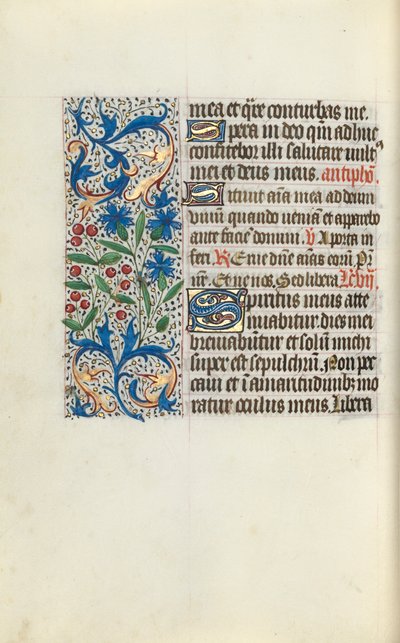 mea et qre conturbas me.
Spera in deo qm adhuc
confitebor illi salutare vult
mei et deus meus. antipho.
Sitiuit aia mea ad deum
viuum quando veniam et apparebo
ante faciē domini. V A porta in
feri R Erue dne aīas eorū Pr
nr̄. Et ne nos. Sed libera Lc vij
Spiritus meus atte
nuabitur dies mei
breuiabuntur et solum michi
super est sepulchrū. Non pec
caui et ī amaritudinib; mo
ratur oculus meus. Libera